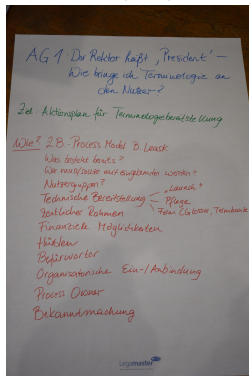 AG 1: Der Rektor heißt 'President' –
Wie bringe ich Terminologie an
den Nutzer?
Ziel: Aktionsplan für Terminologiebereitstellung
Wie? z.B. Process Model B. Leask
Was besteht bereits?
Wer muss/sollte mit eingebunden werden?
Nutzergruppen?
Technische Bereitstellung – "Launch"
Pflege
Form Glossare, Termbank
Zeitlicher Rahmen
Finanzielle Möglichkeiten
Hürden
Befürworter
Organisatorische Ein-/Anbindung
Process Owner
Bekanntmachung
Legamaster